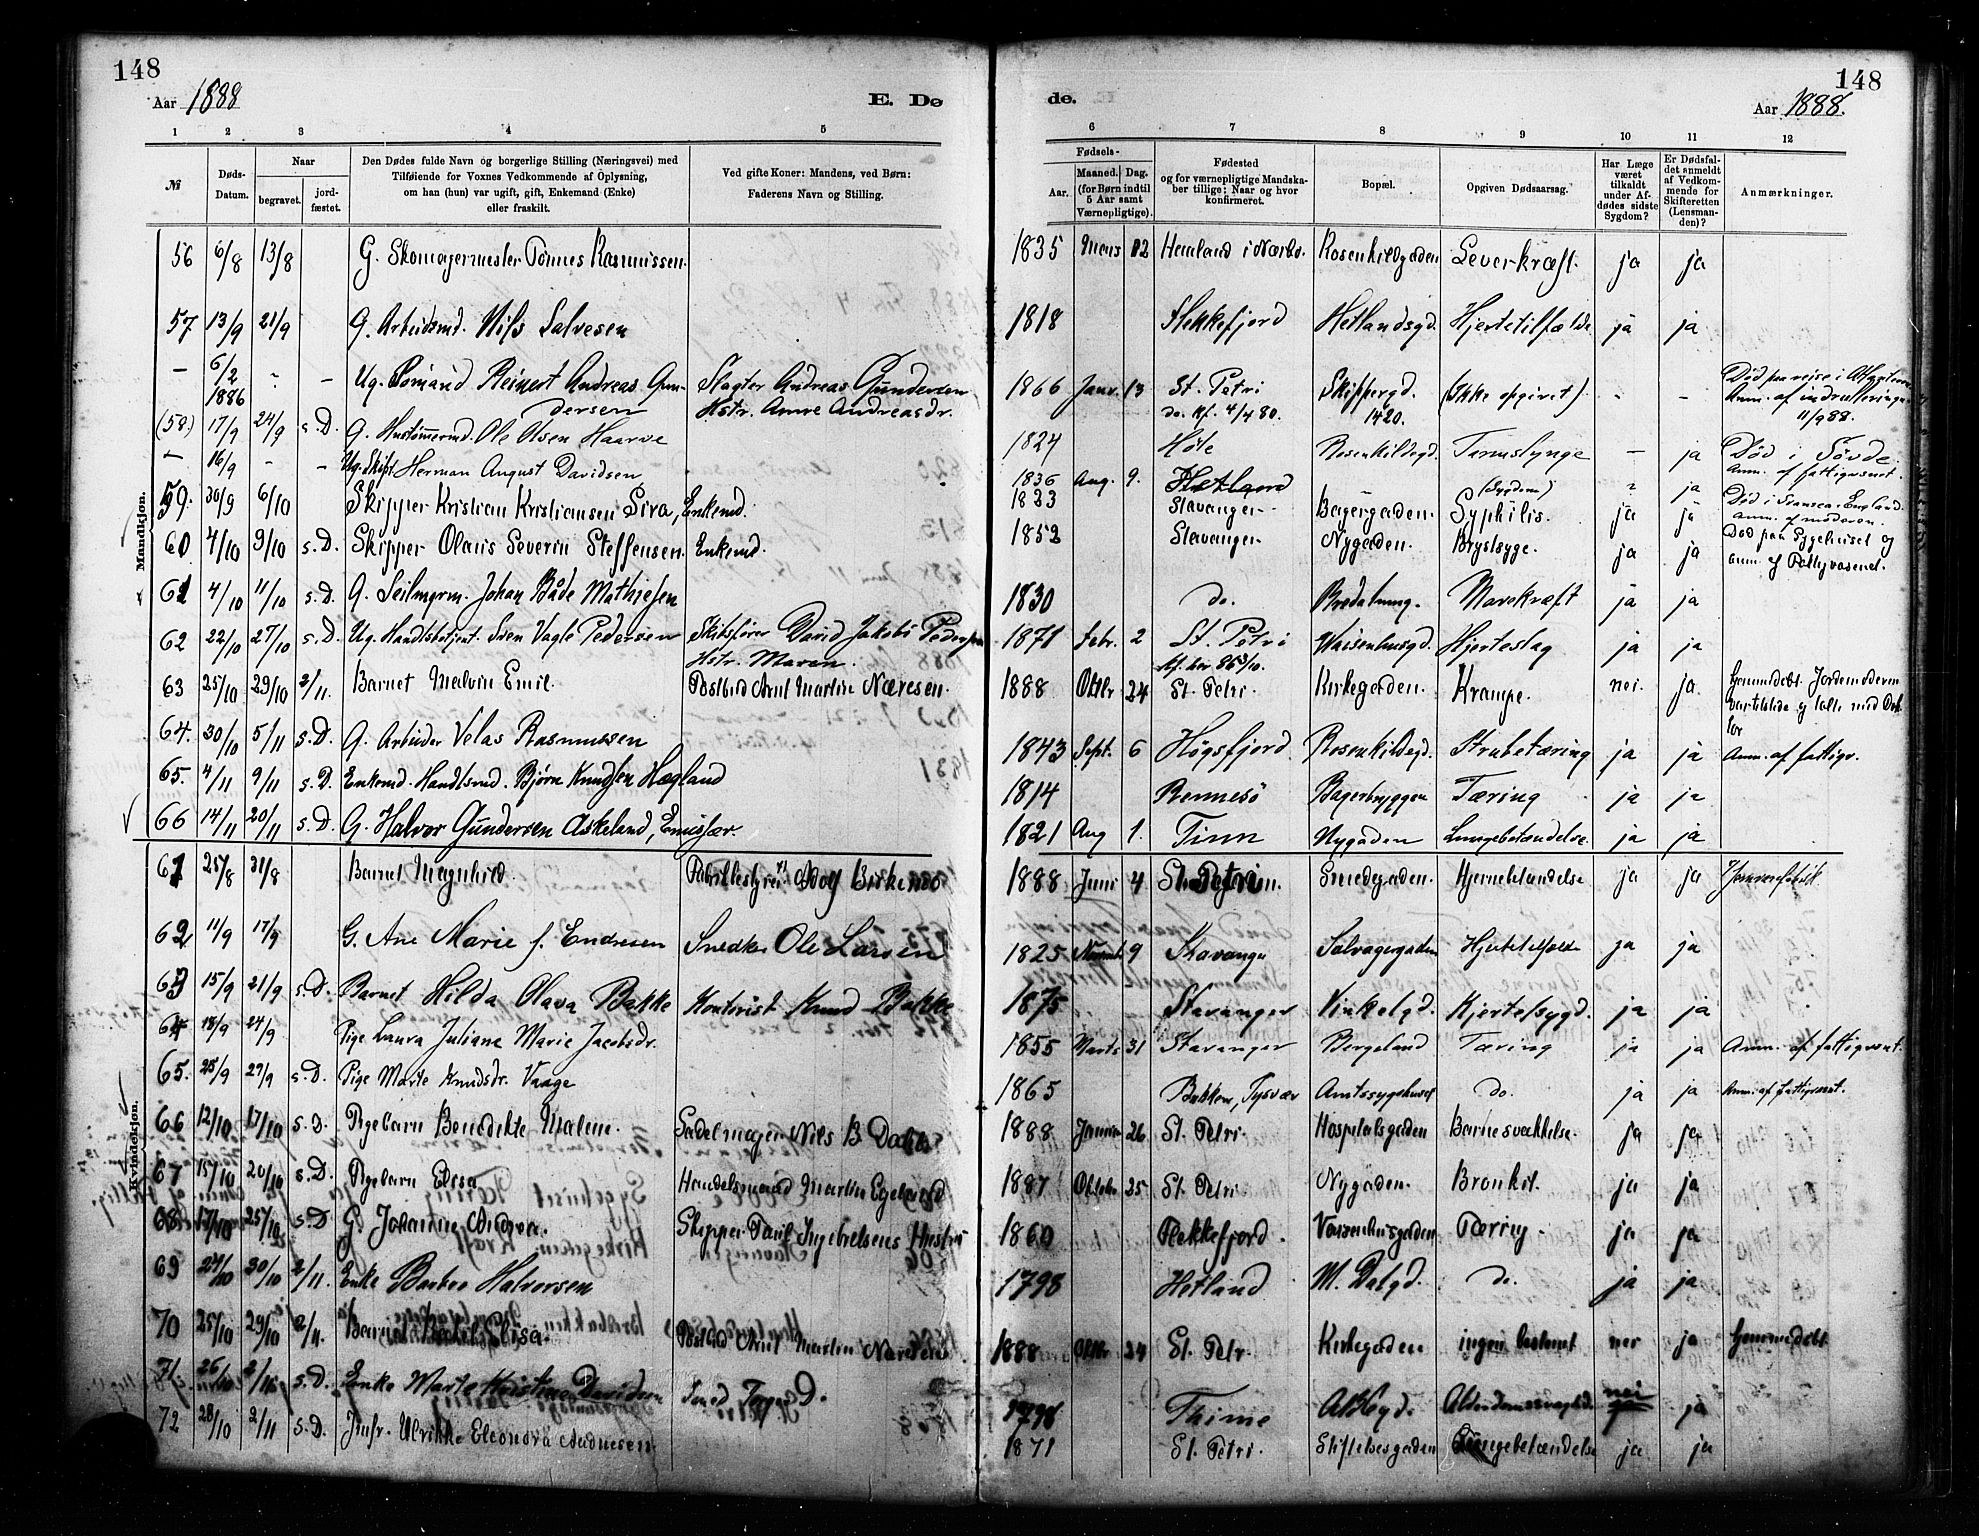 148
148
Aar 1888
E. Dø
de.
Aar 1888.
1 2 3 4 5
6 7 8 9 10 11 12
№
Døds-Datum.
Naar
begravet.
jord-fæstet.
Den Dødes fulde Navn og borgerlige Stilling (Næringsvei) med
Tilføiende for Voxnes Vedkommende af Oplysning,
om han (hun) var ugift, gift, Enkemand (Enke)
eller fraskilt.
Ved gifte Koner: Mandens, ved Børn:
Faderens Navn og Stilling.
Fødsels-
Aar.
Maaned. Dag.
(for Børn indtil
5 Aar samt
Værnepligtige).
Fødested
og for værnepligtige Mandska-
ber tillige: Naar og hvor
konfirmeret.
Bopæl.
Opgiven Dødsaarsag.
Har Læge
været
tilkaldt
under Af-
dødes sidste
Sygdom?
Er Dødsfal-
det anmeldt
af Vedkom-
mende for
Skifteretten
(Lensman-
den)?
Anmærkninger.
Mandkjøn.
56 6/8 13/8 G. Skomagermester Tønnes Rasmussen. 1835 Mars 12 Rosenkildgaden Leverkræft. ja ja
57 13/9 21/9 G. Arbeidsmd. Nils Salvesen 1818 Flekkefjord Hetlandsgd. Hjertetilfælde. ja ja
— 6/2 1886 - — Ug. Sømand Reinert Andreas Gun-dersen Slagter Andreas Gundersen Hstr. Anne Andreasdr. 1866 Janr. 13 St. Petri do. Kf. 4/4 80. Skippergd. 1420. (Ikke opgivet) - - Anm. af 11/9 88.
(58.) 17/9 24/9 s.D. G. Ole Olsen Haarve 1824 Høle Rosenkildegd. Tarmslynge — ja Død i
— 16/9 - — Ug. Skipr. Herman August Davidsen 1836 Aug. 9. Hetland (Sygdom) ja Anm. af fattigvæsnet.
59. 30/9 6/10 Skipper Kristian Kristiansen Sira, Enkemd. 1833 Stavanger Bagergaden. Syphilis. ja ja Død i England.
60 4/10 9/10 s.D. Skipper Olaus Severin Steffensen. Enkemd. 1853 Stavanger Nygaden. Brystsyge. ja ja Død paa Sygehuset og anm. af
61 4/10 11/10 s.D. G. Seilmgrm. Johan Både Mathiesen 1830 do. Bredalmng. Mavekræft ja ja
62 22/10 27/10 s.D. Ug. Handlsbetjent. Sven Vagle Pedersen Skibsfører David Jakobs Pedersen Hstr. Maren. 1871 Febr. 2 St. Petri Waisenhusgd. Hjerteslag ja ja
63 25/10 29/10 2/11. Barnet Malvin Emil. Postbud Arnt Martin Næresen. 1888 Oktbr 24 St. Petri. Kirkegaden. Krampe. nei. ja Hjemmedøbt. Jordemoderen
64. 30/10 5/11 s.D. G. Arbeider Velas Rasmussen 1843 Sept. 6 Høgsfjord. Rosenkildegd. Strubetæring ja ja Anm. af fattigv.
65. 4/11 9/11 s.D. Enkemd. Handlsmd. Bjørn Knudsen Hægland 1814 Rennesø Bagerbryggen Tæring ja ja
66 14/11 20/11 s.D. G. Halvor Gundersen Askeland, Emissær. 1821 Aug 1. Tinn Nygaden Lungebetændelse. ja ja
Kvindekjøn.
61 25/8 31/8 Barnet Magnhild. Fabrikbestyrer Adolf Birkenæs 1888 Juni 4 St. Petri Smedegaden. Hjernebetændelse ja ja
62 11/9 17/9 G. Ane Marie f. Endresen Snedker Ole Larsen 1825 Novembr 9 Stavanger Salvagergaden Hjertetilfælde ja ja
63 15/9 21/9 s.D. Barnet Hilda Olava Bakke Kontorist Knud Bakke 1875 Stavanger Vinkelgd. Kjertelsygd. ja ja
64 18/9 24/9 Pige Laura Juliane Marie Jacobsdr. 1855 Marts 31 Stavanger Bergeland Tæring ja ja Anm. af fattigvsnt.
65. 25/9 27/9 s.D. Pige Marte Knudsdr. Vaage 1865 Bakken, Tysvær Amtssygehuset do. ja ja Anm. af fattigvsnt.
66 12/10 17/10 s.D. Pigebarn Benedikte Malene. Sadelmager Nils B. Dahle 1888 Januar 26 St. Petri. Hospitalsgaden Barnesvækkelse. ja ja
67 15/10 20/10 s.D. Pigebarn Elisa Handelsmand Martin Egeland 1887 Oktobr 25 St. Petri Nygaden. Bronkit. ja ja
68 17/10 25/10 s.D G. Johanne Andrea. Skipper Paul Ingebretsens Hustru 1860 Flekkefjord. Vaisenhusgaden Tæring. ja ja
69 24/10 30/10 2/11. Enke Barbro Halvorsen 1798 Hetland M. Dalgd. do. ja ja
70 25/10 29/10 2/11. Barnet Elisa. Postbud Arnt Martin Næresen 1888 Oktbr 24 St. Petr. Kirkegaden ingen bestemt nei ja Hjemmedøbt
71. 26/10 2/11 s.D. Enke Marta Kristine Davidsen Smed 1798 Thime Alderdomssvaghd. nei ja ja
72 28/10 2/11 s.D. Jmfr. Ulrikke Eleonora Aadnesen. 1871 St. Petri. Stiftelsesgaden Lungebetændelse ja ja